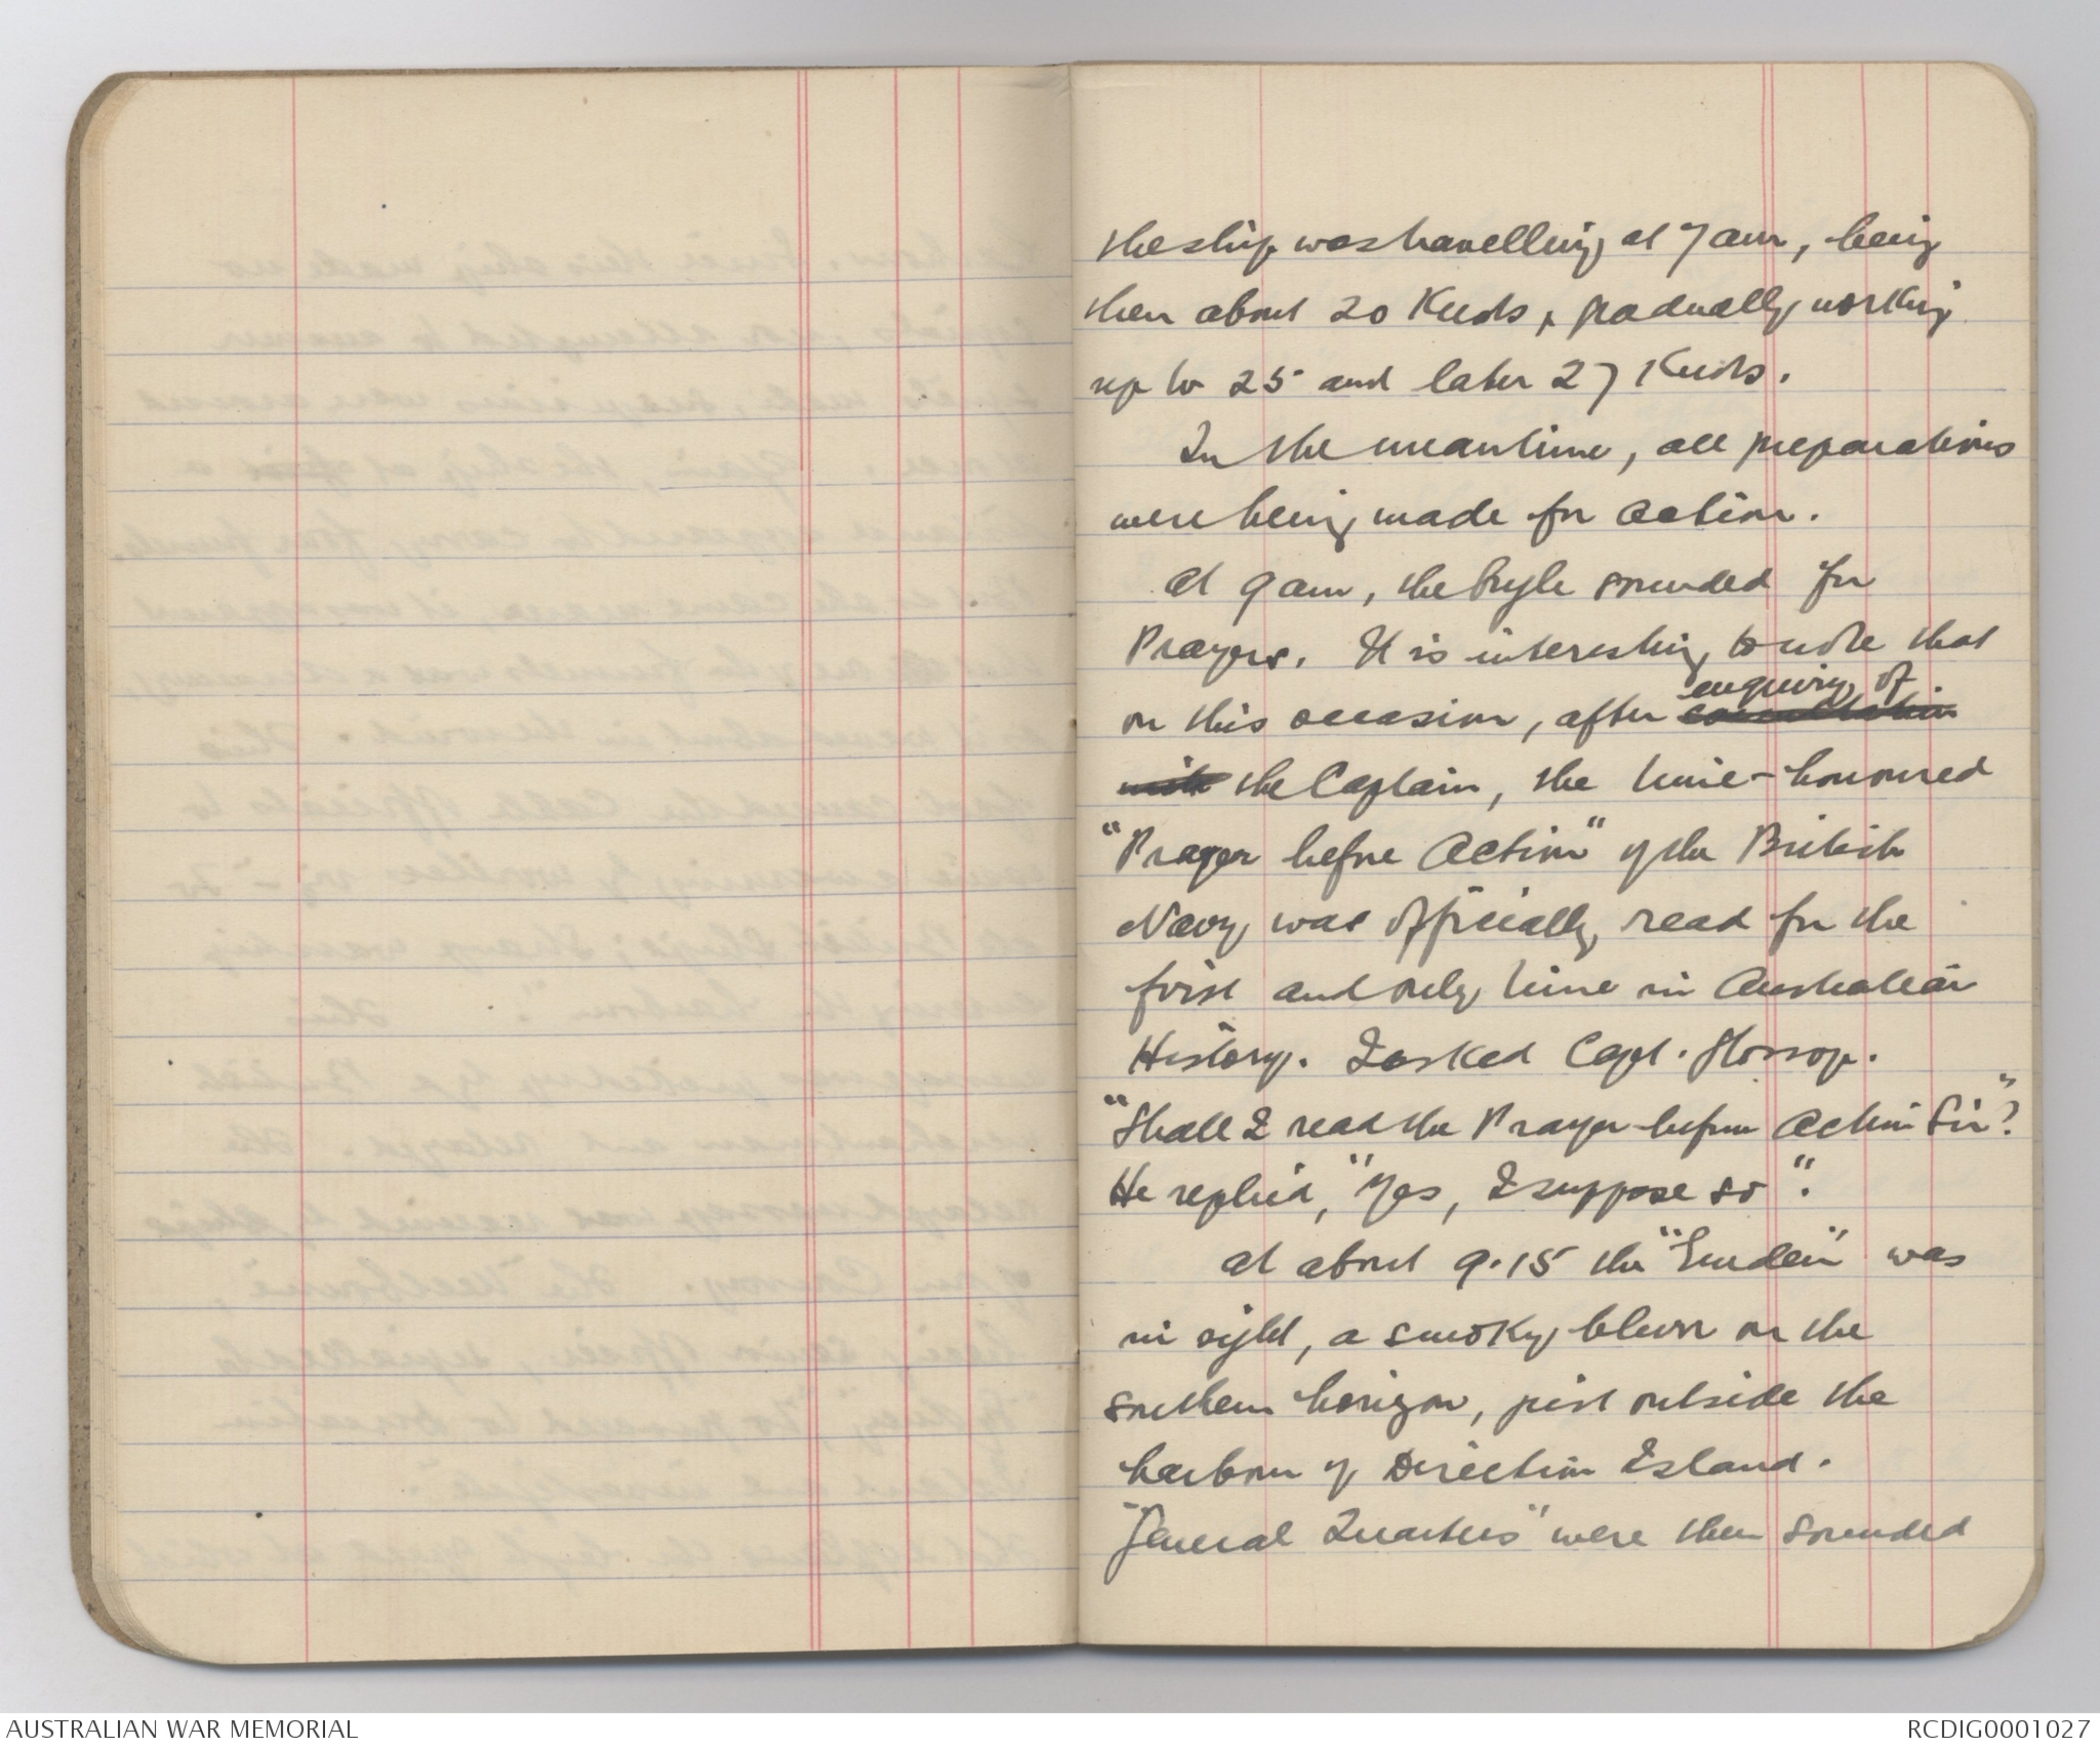 the ship was travelling at 7 am, being
then about 20 Knots, & gradually working
up to 25 and later 27 Knots.
In the meantime, all preparations
were being made for action.
At 9 am, the bugle sounded for
Prayers. It is interesting to note that
enquiry of
on this occasion, after consultation
with the Captain, the time-honoured
"Prayer before Action" of the British
Navy was officially read for the
first and only time in Australian
History. I asked Capt. Glossop.
"Shall I read the Prayer before Action Sir"?
He replied, "Yes, I suppose so".
At about 9.15 the "Emden" was
in sight, a smoky blur on the
southern horizon, just outside the
harbour of Direction Island.
"General Quarters" were then sounded
AUSTRALIAN WAR MEMORIAL
RCDIG0001027